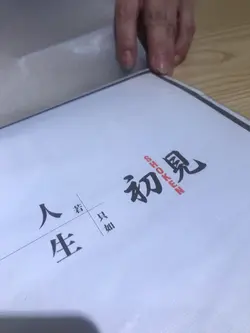 人生
若
只如
初見